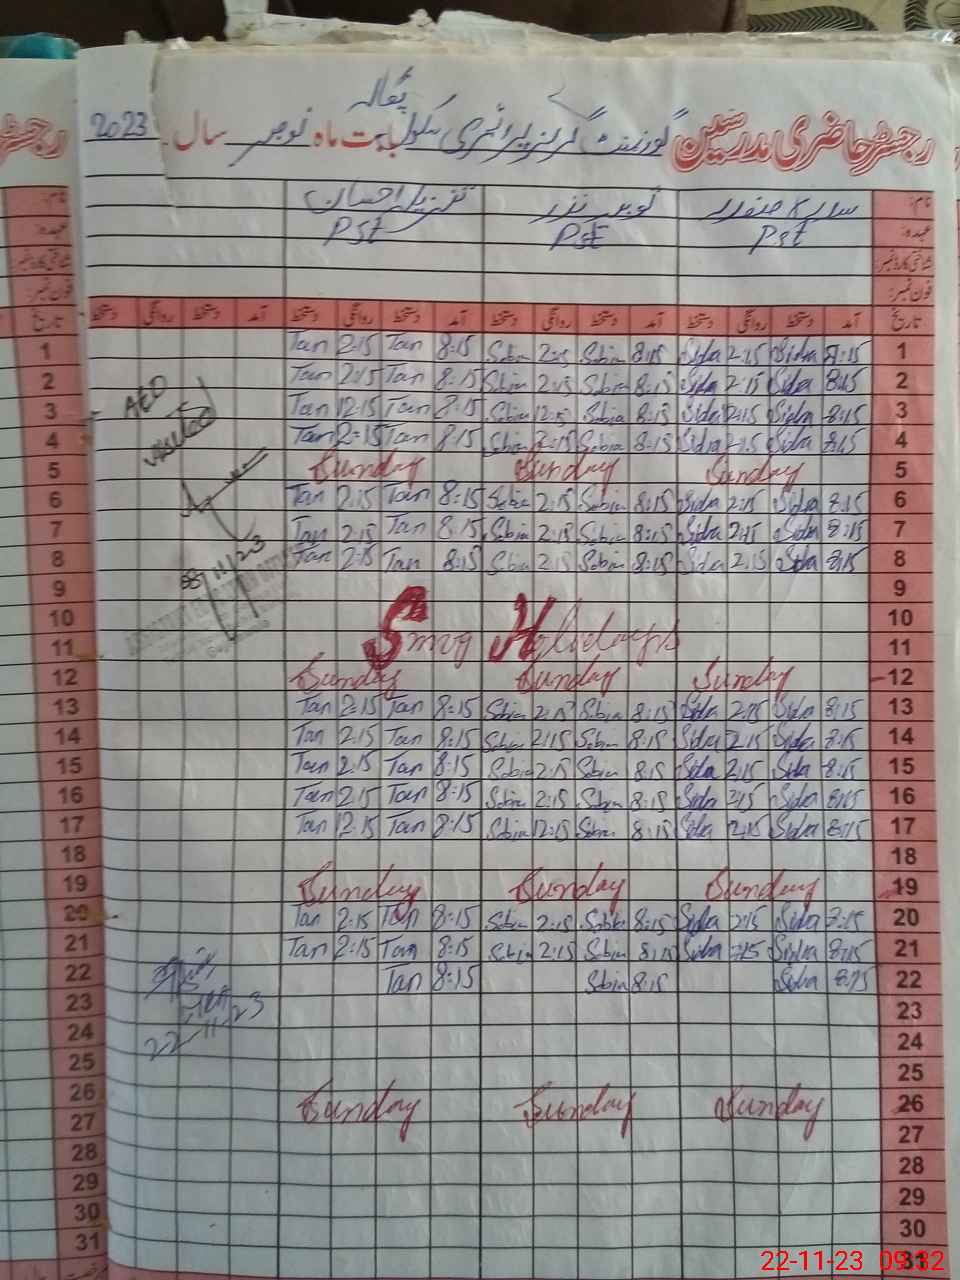 رجسٹر حاضری مدرسین گورنمنٹ گرلز پرائمری سکول بابت ماہ نومبر سال 2023
نام:
عہدہ: Pst Pst Pst
شناختی کارڈ نمبر:
فون نمبر:
تاریخ آمد دستخط روانگی دستخط آمد دستخط روانگی دستخط آمد دستخط روانگی دستخط آمد دستخط روانگی دستخط
1 Tan 2:15 Tan 8:15 Sobia 2:15 Sobia 8:15 Sidra 2:15 Sidra 8:15 1
2 Tan 2:15 Tan 8:15 Sobia 2:15 Sobia 8:15 Sidra 2:15 Sidra 8:15 2
3 Tan 12:15 Tan 8:15 Sobia 12:15 Sobia 8:15 Sidra 2:15 Sidra 8:15 3
AEO
visited
4 Tan 2:15 Tan 8:15 Sobia 2:15 Sobia 8:15 Sidra 2:15 Sidra 8:15 4
5 Sunday Sunday Sunday 5
6 Tan 2:15 Tan 8:15 Sobia 2:15 Sobia 8:15 Sidra 2:15 Sidra 8:15 6
7 Tan 2:15 Tan 8:15 Sobia 2:15 Sobia 8:15 Sidra 2:15 Sidra 8:15 7
8 Tan 2:15 Tan 8:15 Sobia 2:15 Sobia 8:15 Sidra 2:15 Sidra 8:15 8
08/11/23
9 9
10 Smog Holidays 10
11 11
12 Sunday Sunday Sunday 12
13 Tan 2:15 Tan 8:15 Sobia 2:15 Sobia 8:15 Sidra 2:15 Sidra 8:15 13
14 Tan 2:15 Tan 8:15 Sobia 2:15 Sobia 8:15 Sidra 2:15 Sidra 8:15 14
15 Tan 2:15 Tan 8:15 Sobia 2:15 Sobia 8:15 Sidra 2:15 Sidra 8:15 15
16 Tan 2:15 Tan 8:15 Sobia 2:15 Sobia 8:15 Sidra 2:15 Sidra 8:15 16
17 Tan 12:15 Tan 8:15 Sobia 12:15 Sobia 8:15 Sidra 12:15 Sidra 8:15 17
18 18
19 Sunday Sunday Sunday 19
20 Tan 2:15 Tan 8:15 Sobia 2:15 Sobia 8:15 Sidra 2:15 Sidra 8:15 20
21 Tan 2:15 Tan 8:15 Sobia 2:15 Sobia 8:15 Sidra 2:15 Sidra 8:15 21
22 Tan 8:15 Sobia 8:15 Sidra 8:15 22
23 23
22/11/23
24 24
25 25
26 Sunday Sunday Sunday 26
27 27
28 28
29 29
30 30
31 31
22-11-23 09:32